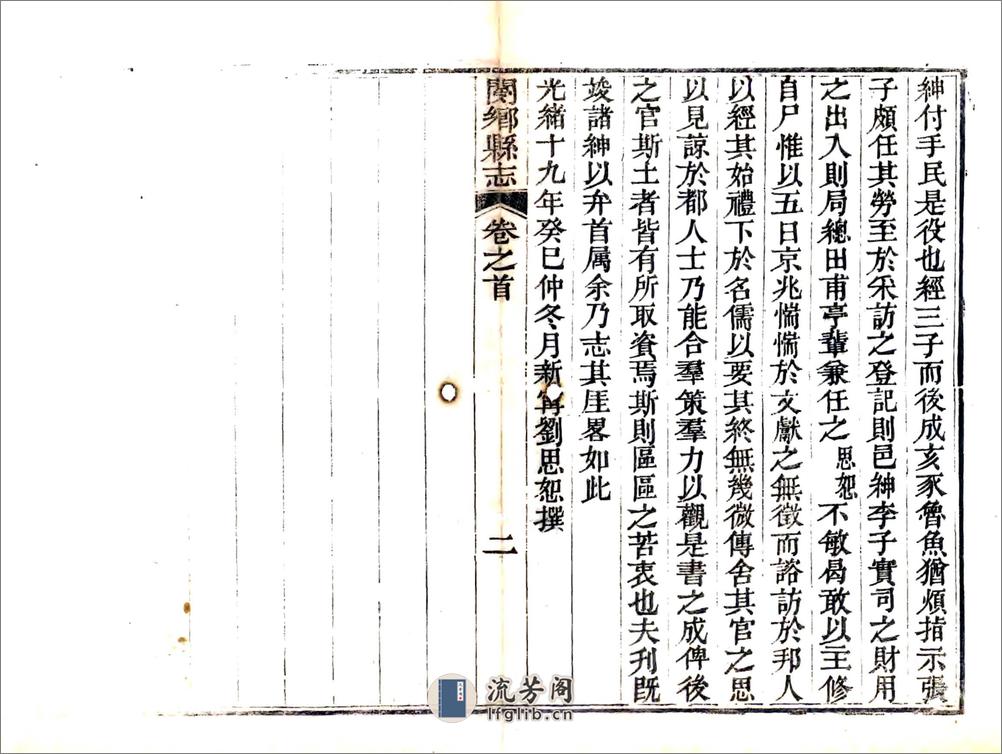 紳付手民是役也經三子而後成亥豕魯魚猶煩指示張
子頗任其勞至於采訪之登記則邑紳李子實司之財用
之出入則局總田甫亭輩兼任之思恕不敏曷敢以主修
自尸惟以五日京兆惴惴於文獻之無徵而諮訪於邦人
以經其始禮下於名儒以要其終無幾微傳舍其官之思
以見諒於都人士乃能合羣策羣力以觀是書之成俾後
之官斯土者皆有所取資焉斯則區區之苦衷也夫刋既
竣諸紳以弁首属余乃志其厓畧如此
光緒十九年癸巳仲冬月新甯劉思恕撰
閿鄉縣志 卷之首 二
流芳阁
lfglib.cn